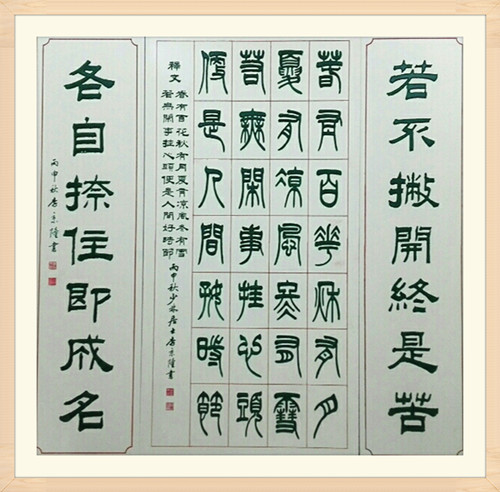 若不撇開終是苦
春有百華秋有月
夏有涼風冬有雪
若無閑事挂心頭
便是人間好時節
釋文
春有百花秋有月夏有凉風冬有雪
若無閑事挂心頭便是人間好時節
丙申秋少林居士書
各自捺住即成名
丙申秋書